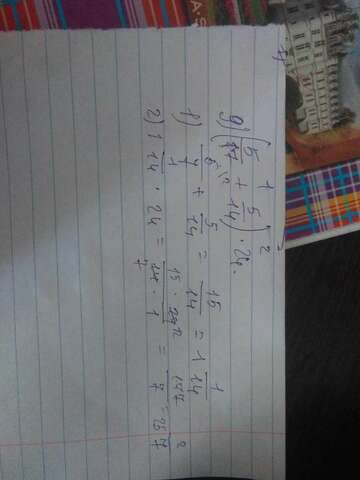 g) (5/7 + 5/14) · 24.
1) 5/7 + 5/14 = 15/14 = 1 1/14
2) 1 1/14 · 24 = 15 · 24/14 · 1 = 177/7 = 25 2/7